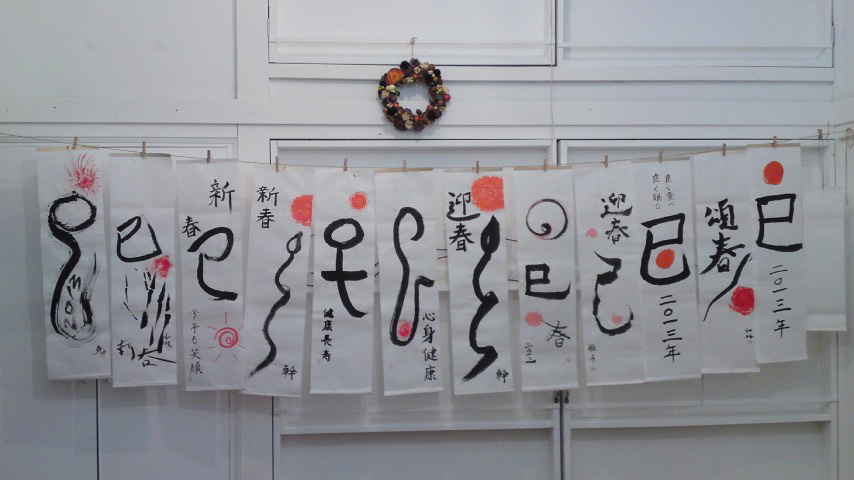 巳
新春
新
春
巳
今年も笑顔
新春
幹
健康長寿
心身健康
迎春
幹
巳
春
迎春
巳
良く食べ
良く眠る
巳
二〇一三年
頌春
巳
二〇一三年